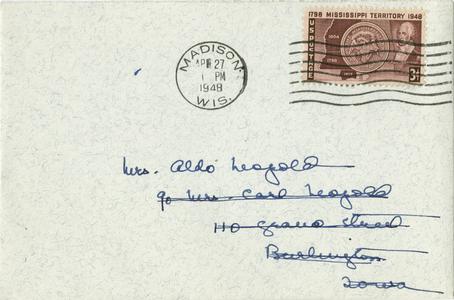 1798 MISSISSIPPI TERRITORY 1948
U.S. POSTAGE
1804
1798
1812
3¢
MADISON,
APR 27
1 PM
1948
WIS.
Mrs. Aldo Leopold
c/o Mrs. Carl Leopold
110 Grand Street
Burlington
Iowa